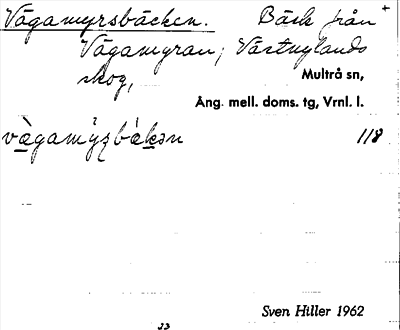 Vågamyrsbäcken. Bäck från +
Vågamyran, Västnylands
skog,
Multrå sn,
Ång. mell. doms. tg, Vrnl. l.
118
Sven Hiller 1962
33